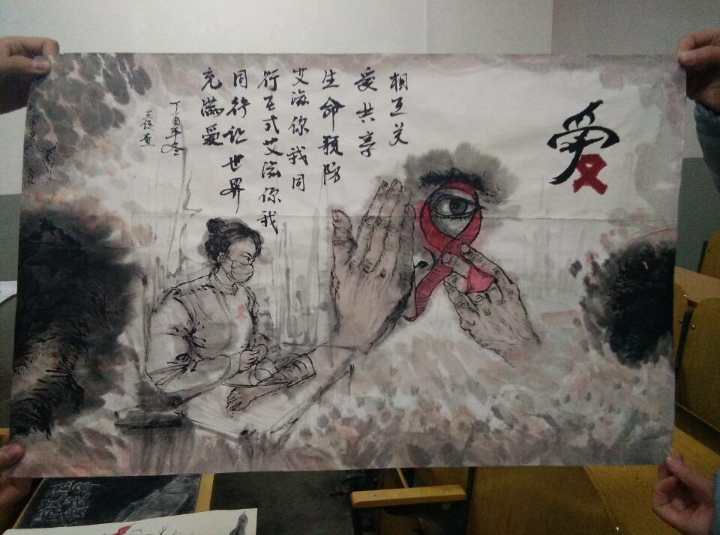 爱
相互关
爱共享
生命预防
艾滋你我同
行互式艾滋你我
同行让世界
充满爱
丁酉年冬